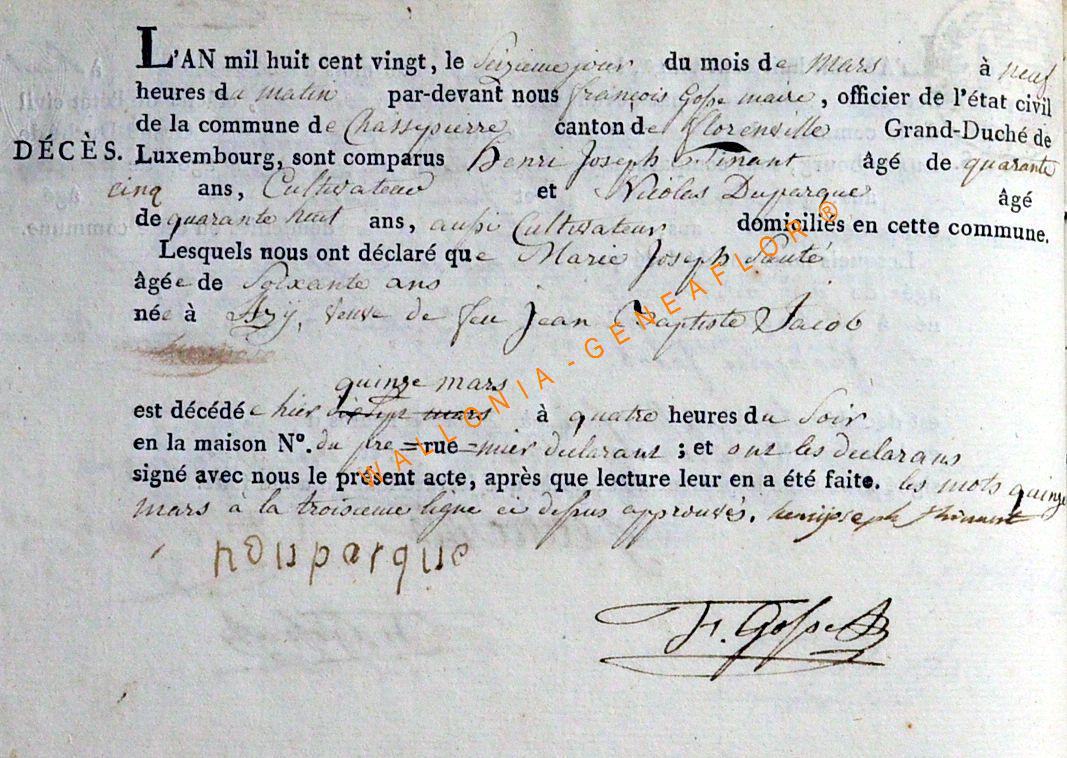 L'AN mil huit cent vingt, le Seizieme jour du mois de mars à neuf
heures du matin par-devant nous françois Gosse maire, officier de l'état civil
de la commune de Chassepierre canton de florenville Grand-Duché de
DÉCÈS. Luxembourg, sont comparus henri Joseph âgé de quarante
cinq ans, Cultivateur et Nicolas Duparque âgé
de quarante huit ans, aussi Cultivateur domiciliés en cette commune.
Lesquels nous ont déclaré que Marie Joseph Santé
âgée de Soixante ans
née à Azÿ, veuve de feu Jean Baptiste Jacob
quinze mars
est décédée hier mars à quatre heures du Soir
en la maison N°. du pre = rue = mier declarant ; et ont les declarans
signé avec nous le présent acte, après que lecture leur en a été faite. les mots quinze
mars à la troisieme ligne ci dessus approuvés. henrijoseph
nouparque
F. Gosse
WALLONIA - GENEAFLOR ®